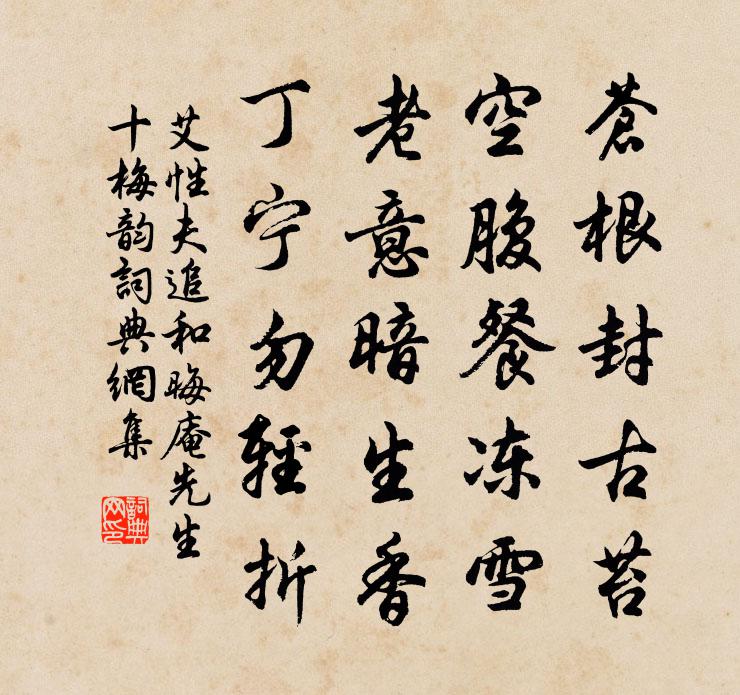 蒼根封古苔
空腹餐冻雪
老意暗生香
丁宁勿輕折
艾性夫追和晦庵先生
十梅韵詞典網集
詞典网印